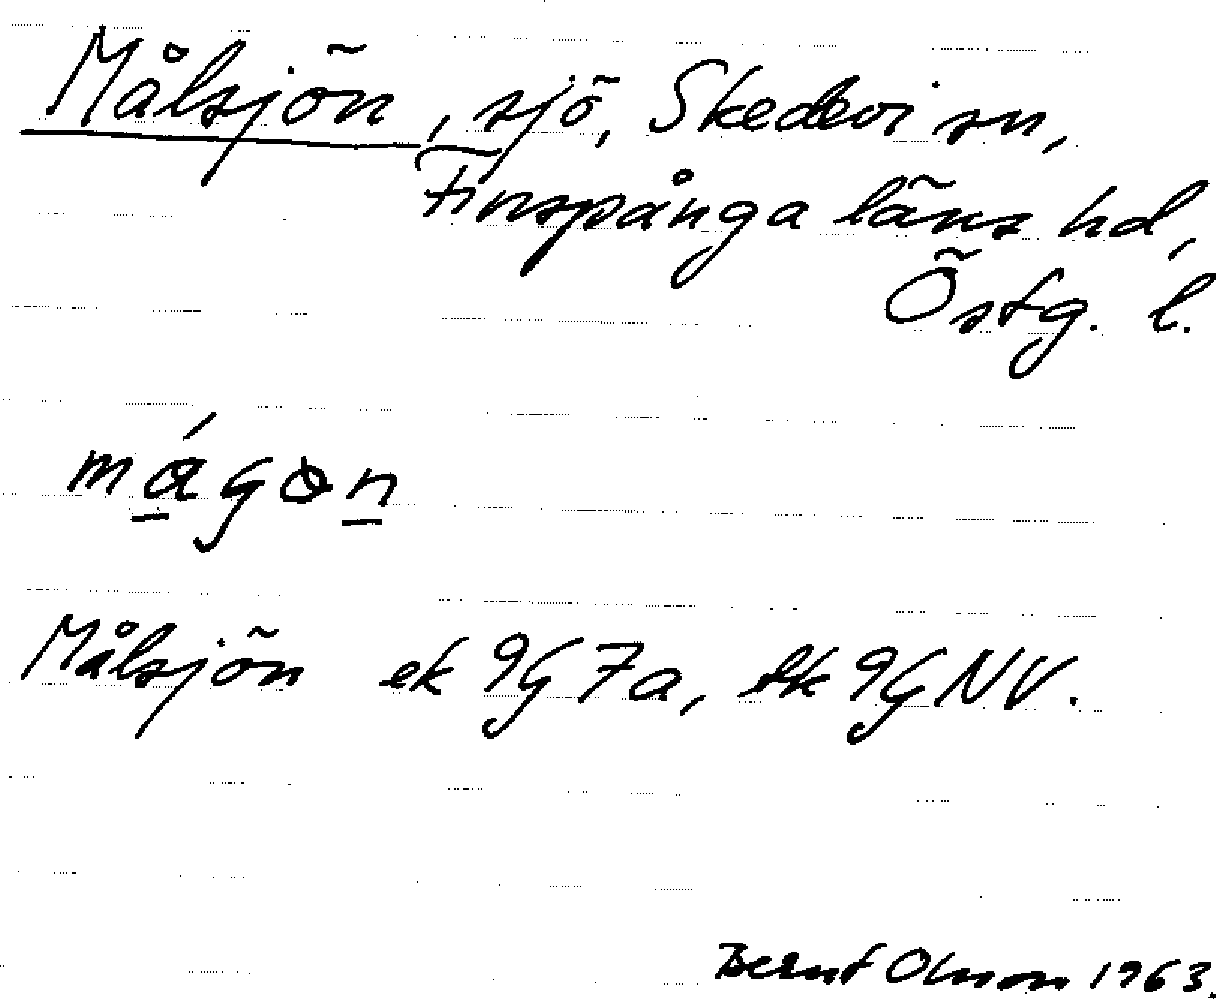 Målsjön, sjö, Skedevi sn,
Finspånga läns hd,
Östg. l.
Målsjön ek 9G7a, tk 9GNV.
Bernt Olsson 1963.